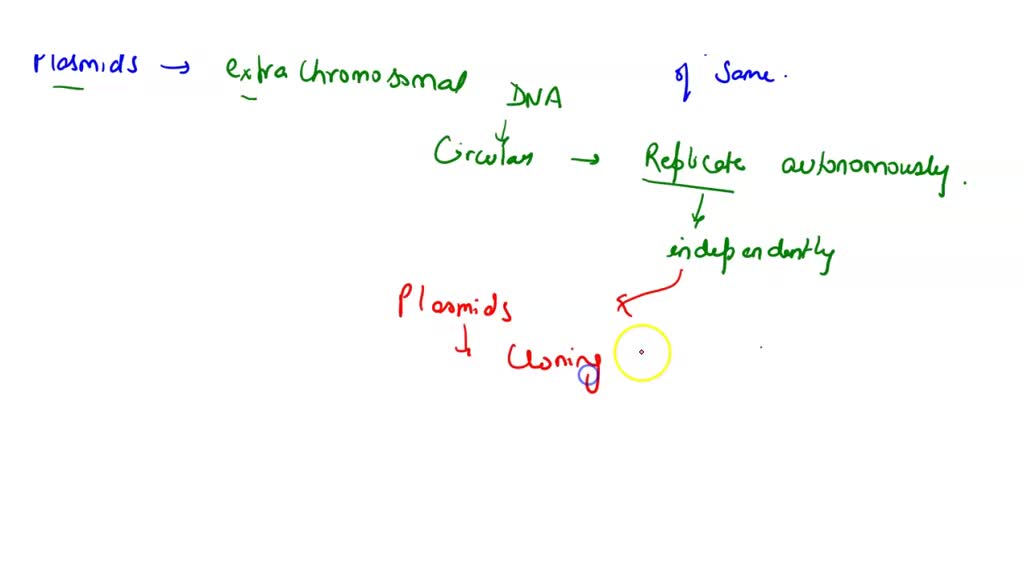 Plasmids → extra chromosomal DNA
of same.
Circular → Replicate autonomously.
independently
Plasmids
Cloning